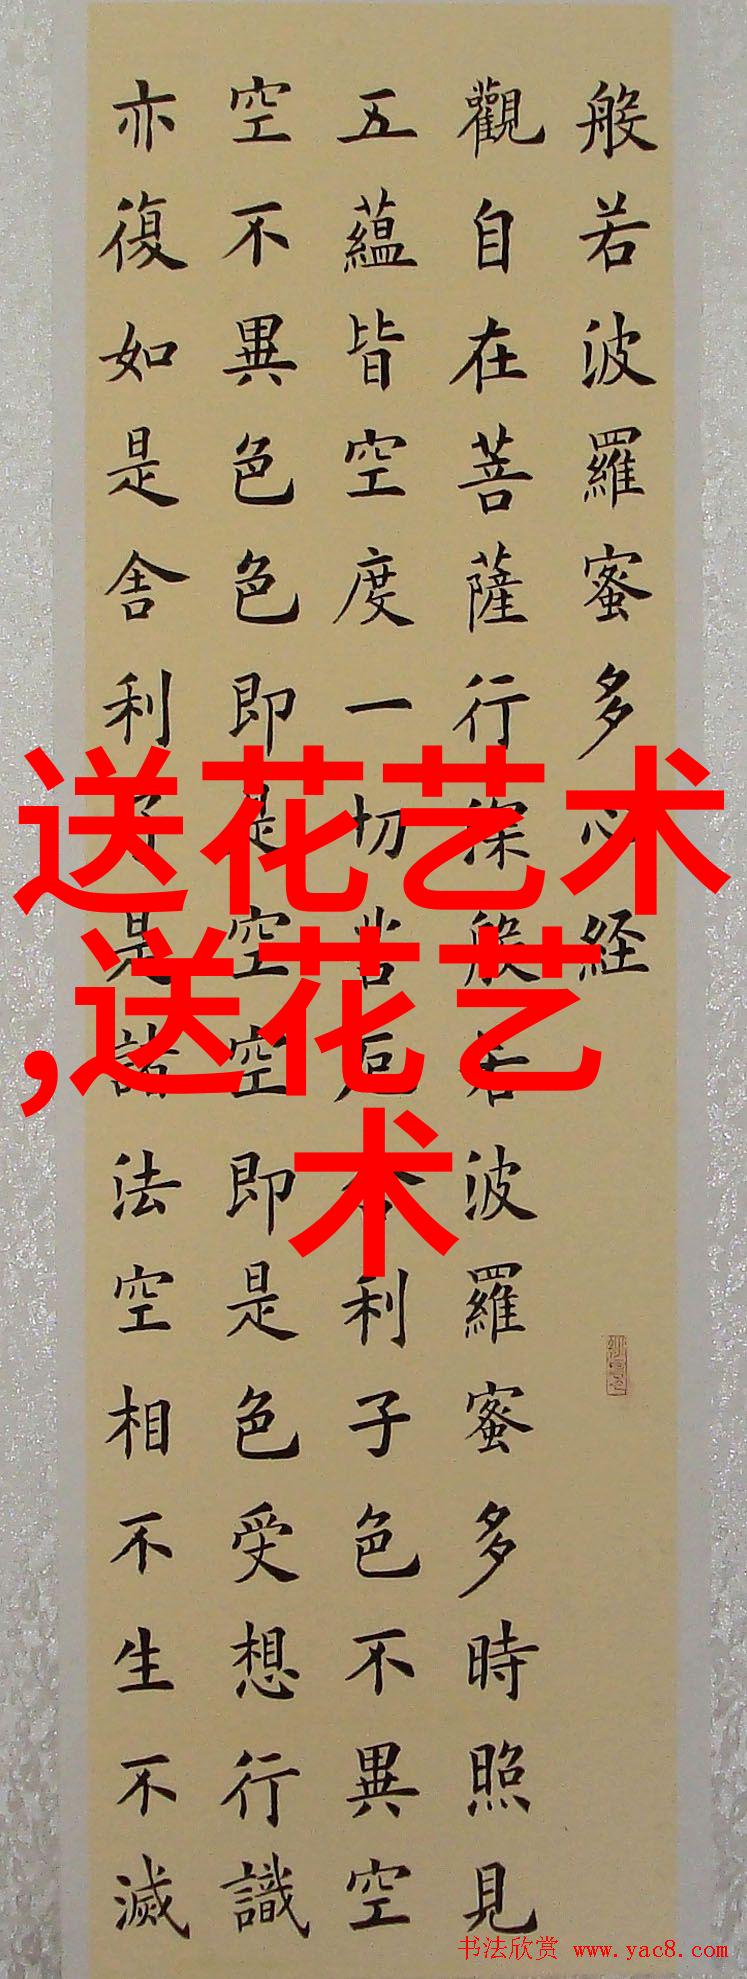 般若波羅蜜多心経
觀自在菩薩行深般若波羅蜜多時照見
五蘊皆空度一切苦厄舎利子色不異空
空不異色色即是空空即是色受想行識
亦復如是舎利子是諸法空相不生不滅
送花艺术
,送花艺
术
书法欣赏 www.yac8.com